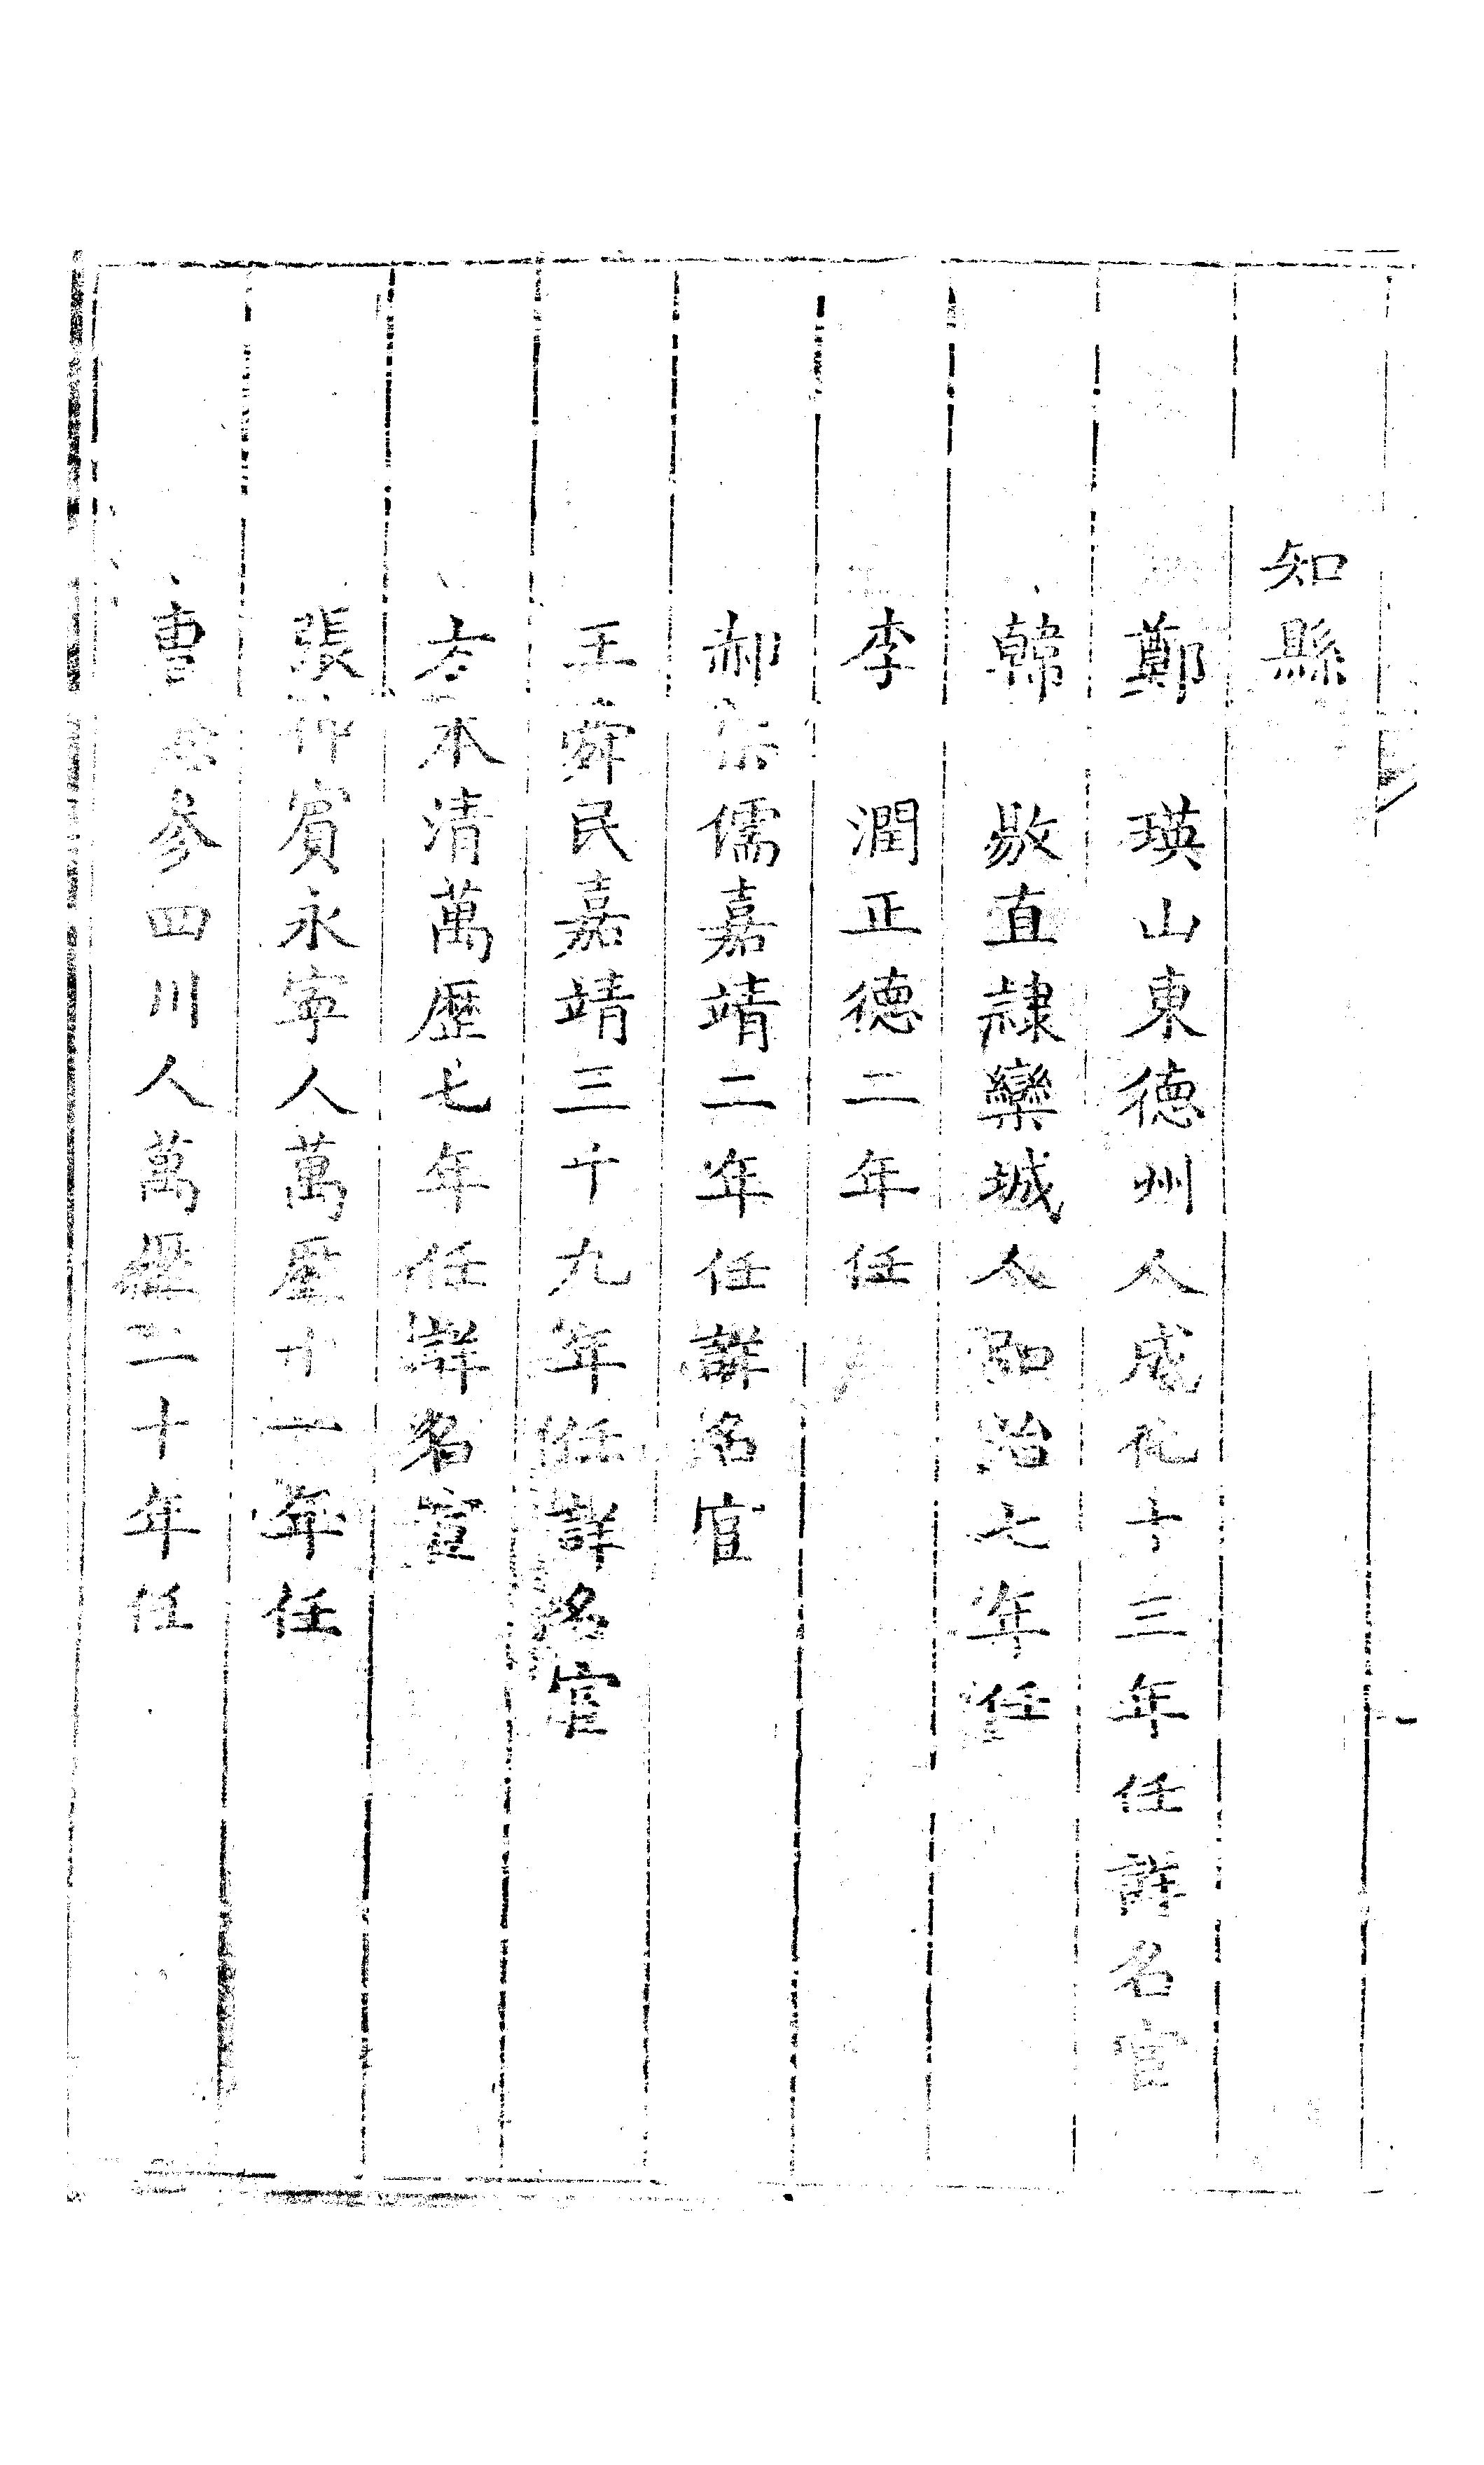 知縣
鄭 瑛山東德州人成化十三年任詳名宦
韓 敭直隸欒城人弘治七年任
李 潤正德二年任
郝 儒嘉靖二年任詳名宦
王舜民嘉靖三十九年任詳名宦
方本清萬歷七年任詳名宦
張仰賓永寧人萬歷十一年任
曹 參四川人萬歷二十年任